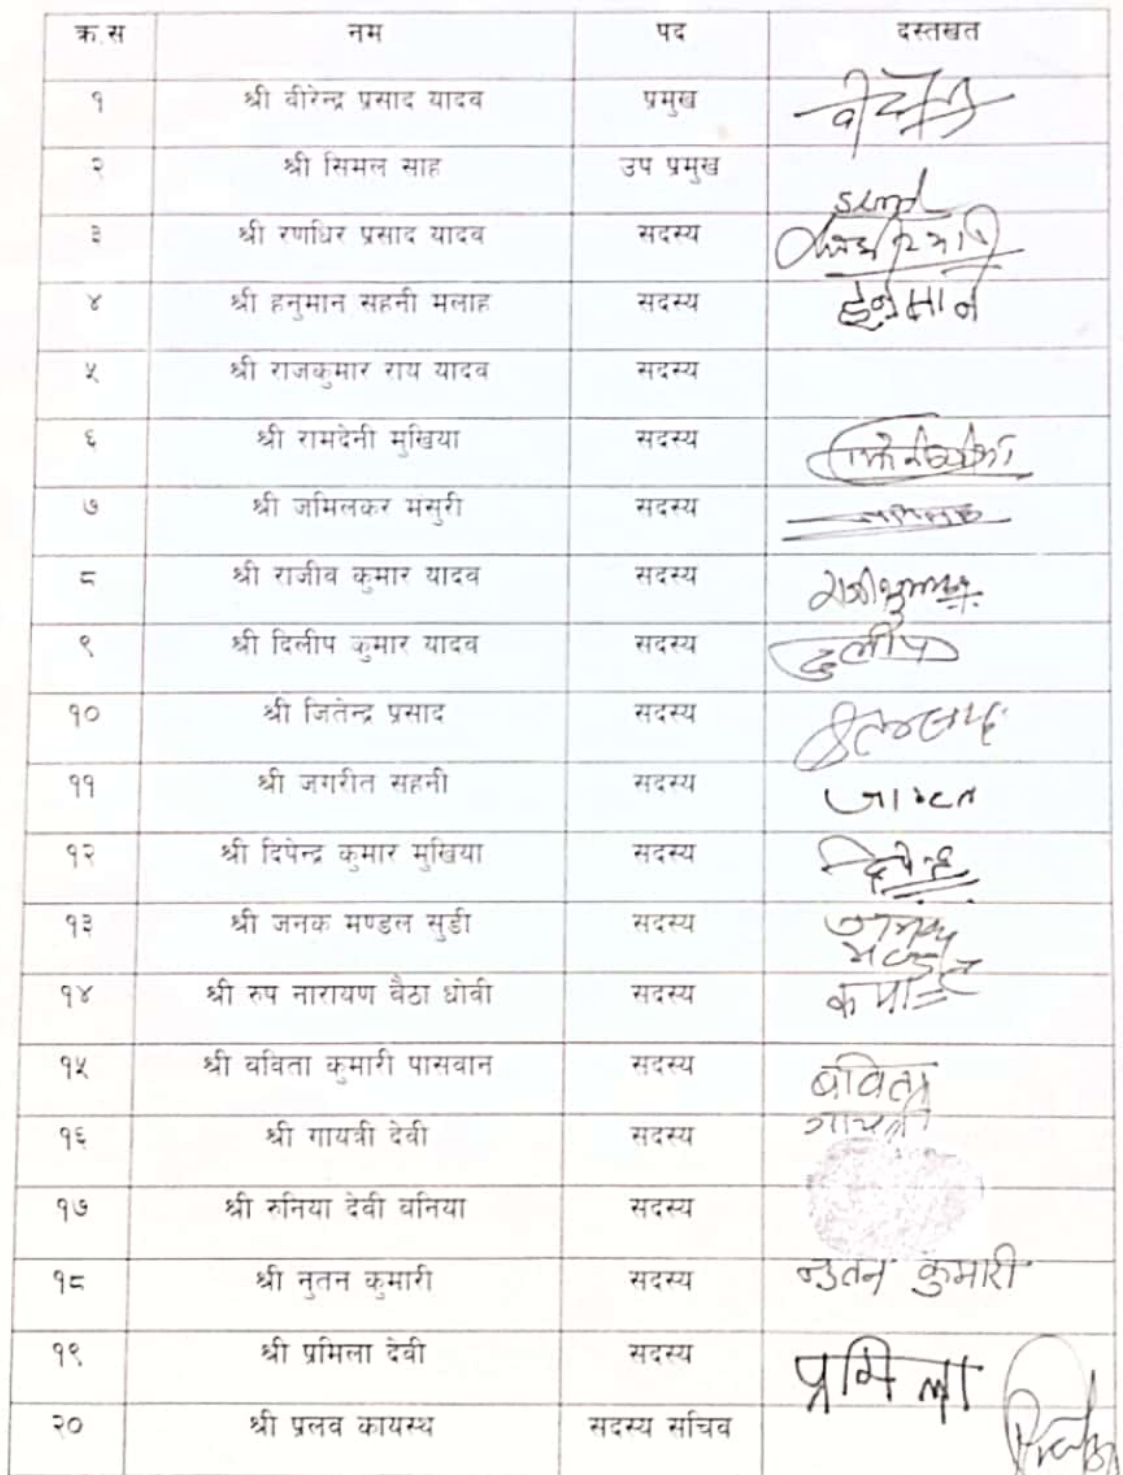 क्र.स नम पद दस्तखत
१ श्री वीरेन्द्र प्रसाद यादव प्रमुख
२ श्री सिमल साह उप प्रमुख
३ श्री रणधिर प्रसाद यादव सदस्य
४ श्री हनुमान सहनी मलाह सदस्य हनुमान
५ श्री राजकुमार राय यादव सदस्य
६ श्री रामदेनी मुखिया सदस्य
७ श्री जमिलकर मंसुरी सदस्य
८ श्री राजीव कुमार यादव सदस्य
९ श्री दिलीप कुमार यादव सदस्य दिलीप
१० श्री जितेन्द्र प्रसाद सदस्य
११ श्री जगरीत सहनी सदस्य
१२ श्री दिपेन्द्र कुमार मुखिया सदस्य
१३ श्री जनक मण्डल सुडी सदस्य
१४ श्री रुप नारायण बैठा धोवी सदस्य
१५ श्री वविता कुमारी पासवान सदस्य बविता
१६ श्री गायत्री देवी सदस्य गायत्री
१७ श्री रुनिया देवी वनिया सदस्य
१८ श्री नुतन कुमारी सदस्य नुतन कुमारी
१९ श्री प्रमिला देवी सदस्य प्रमिला
२० श्री प्रलव कायस्थ सदस्य सचिव